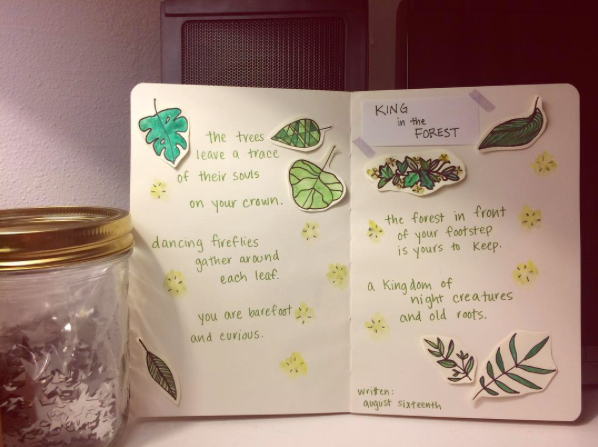 the trees
leave a trace
of their souls
on your crown.
dancing fireflies
gather around
each leaf.
you are barefoot
and curious.
KING
in the
FOREST
the forest in front
of your footstep
is yours to keep.
a kingdom of
night creatures
and old roots.
written:
august sixteenth